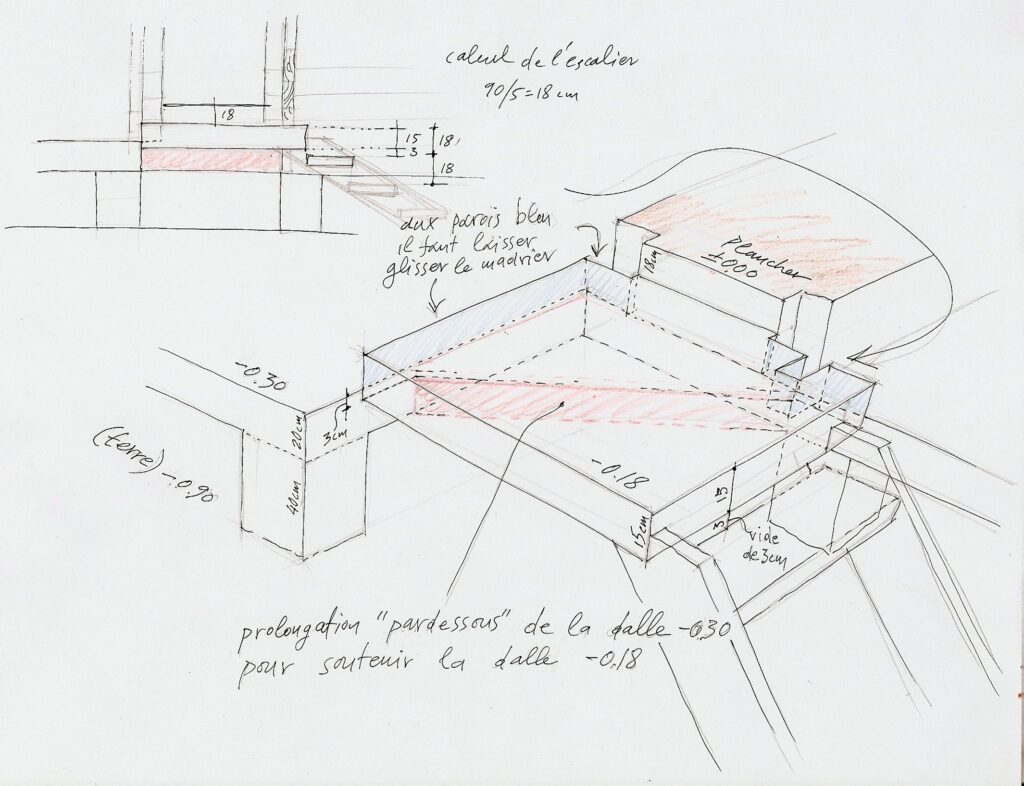 calcul de l'escalier
90/5=18 cm
18
15
3
18
18
aux parois bleu
il faut laisser
glisser le madrier
Plancher
±0.00
18cm
-0.30
3cm
20cm
40cm
(terre) -0.90
-0.18
15cm
15
3
vide
de 3cm
prolongation "pardessous" de la dalle -0.30
pour soutenir la dalle -0.18